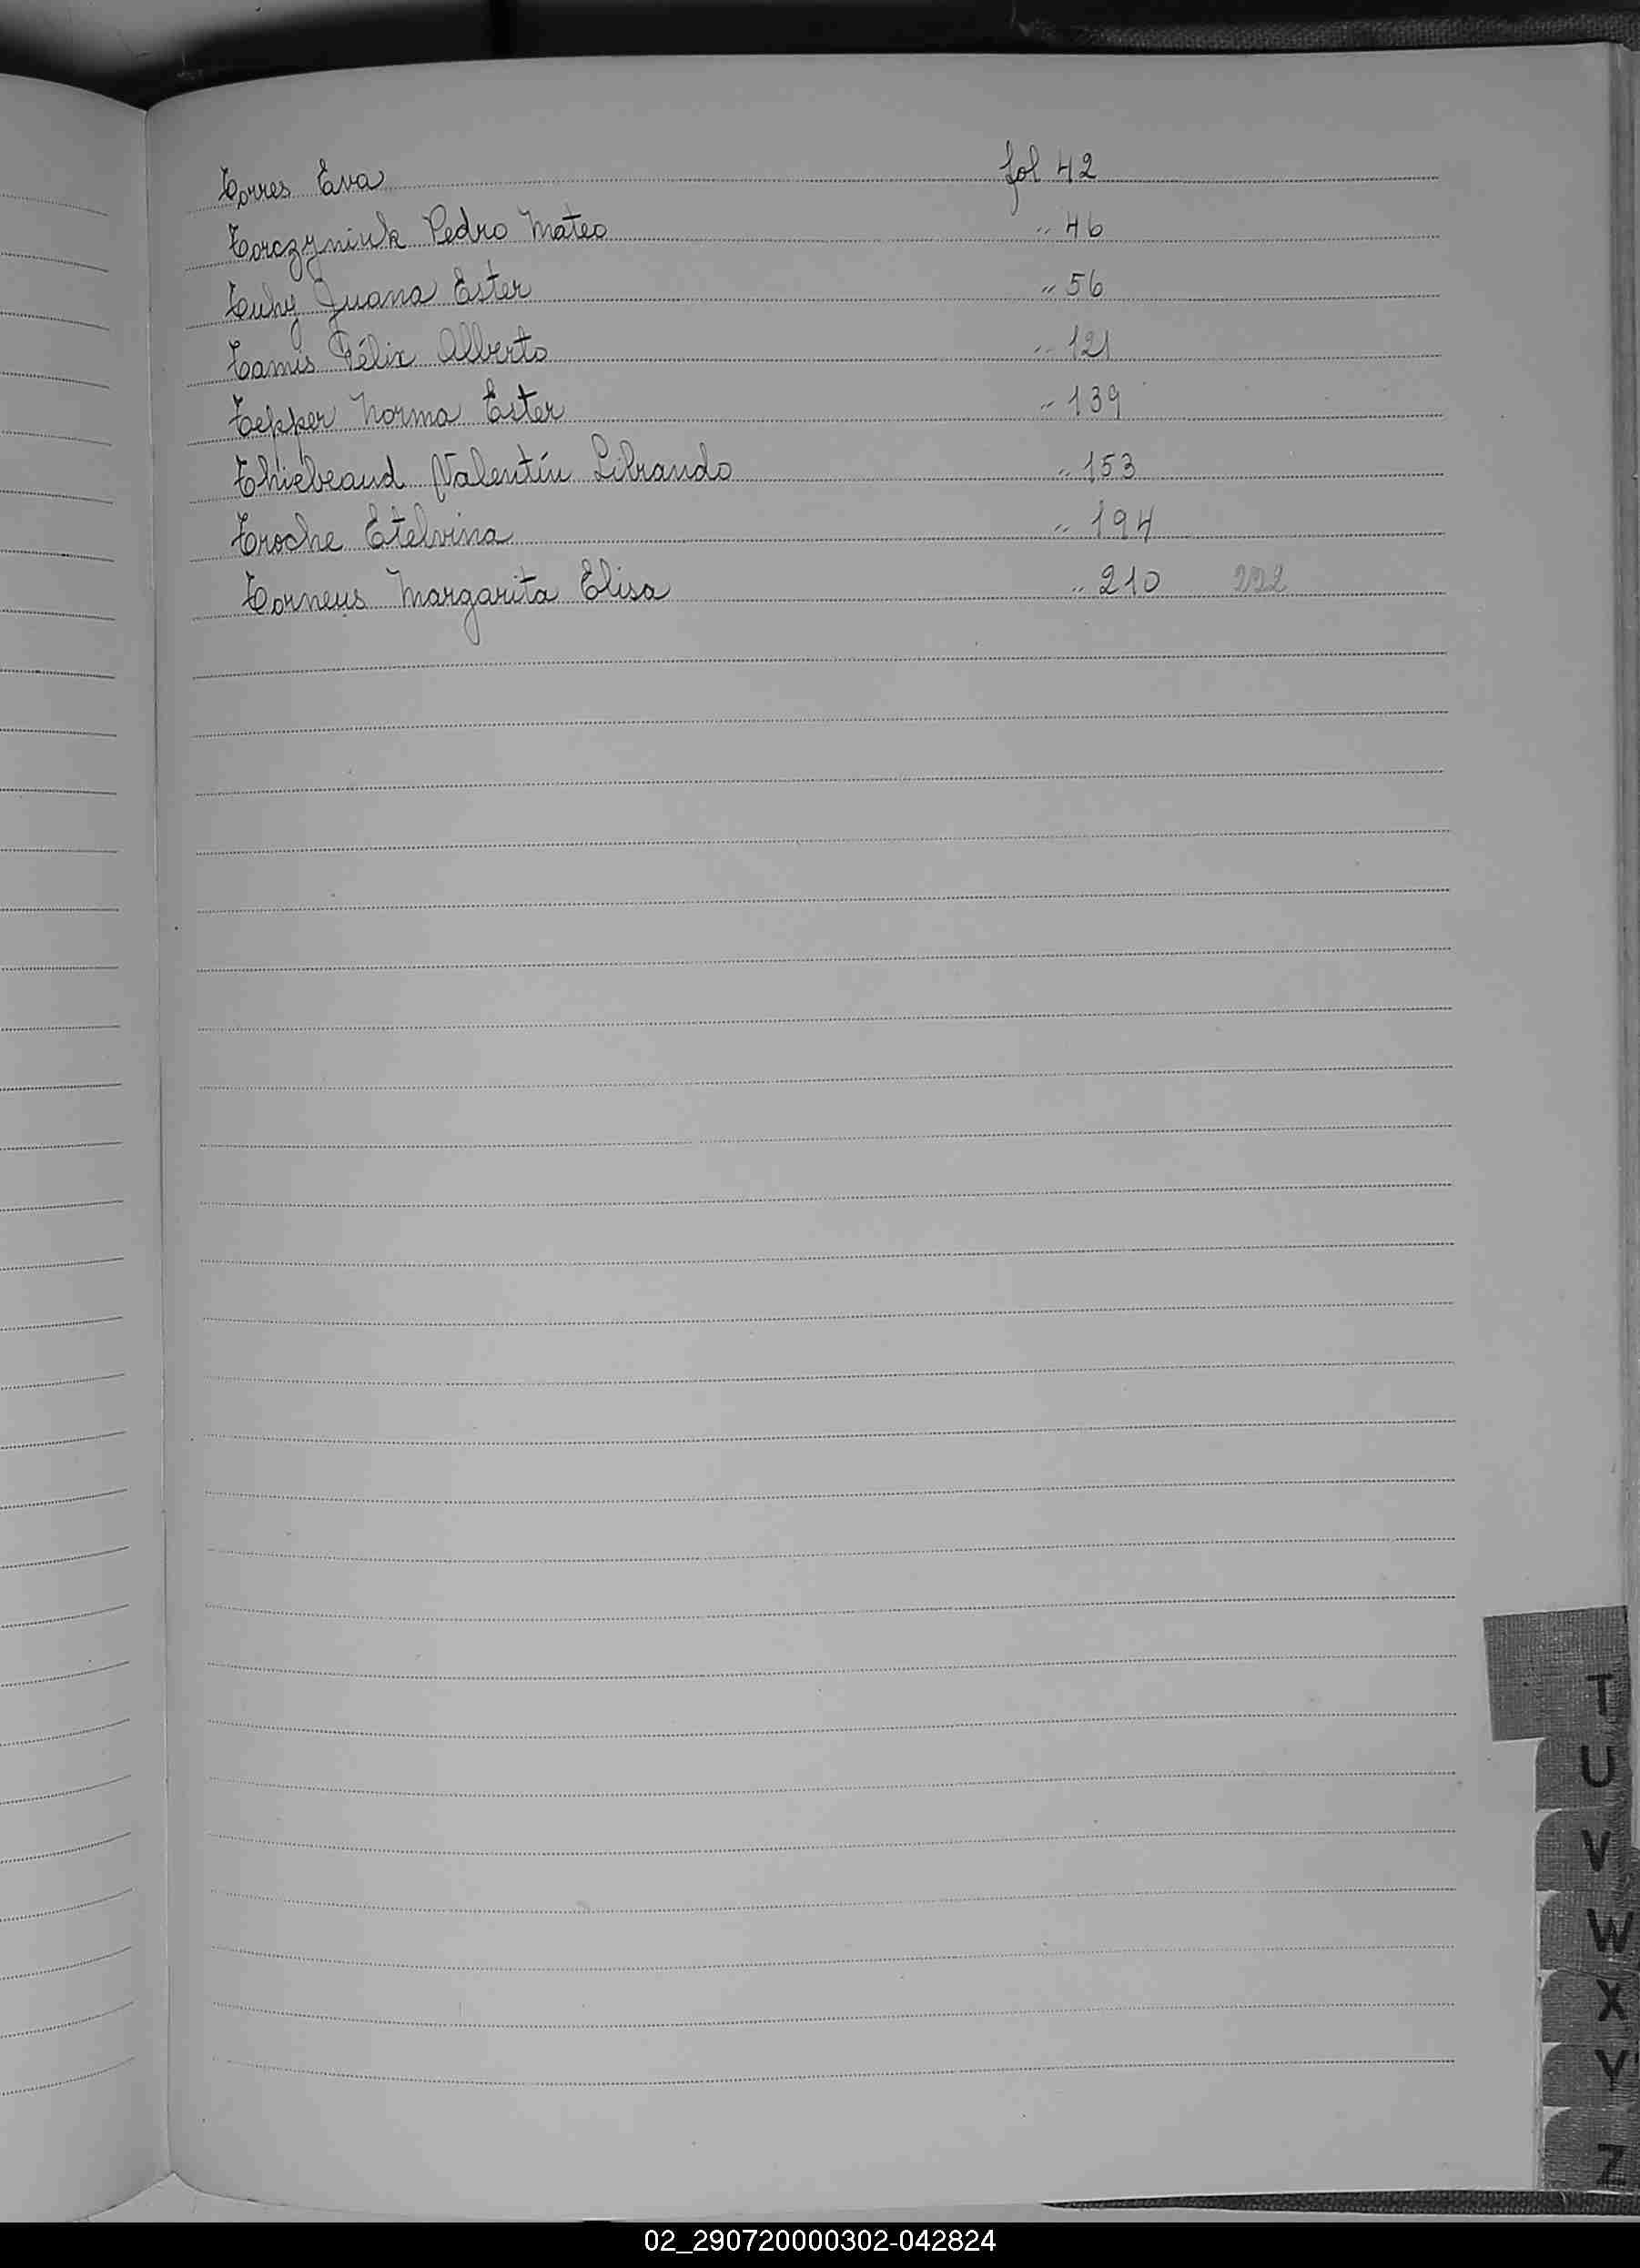 Torres Eva fol 42
Torczyniuk Pedro Mateo " 46
Tuhy Juana Ester " 56
Tamis Félix Alberto " 121
Tepper Norma Ester " 139
Thiebeaud Valentín Librando " 153
Troche Etelvina " 194
Torneus Margarita Elisa " 210 222
T
U
V
W
X
Y
Z
02_290720000302-042824